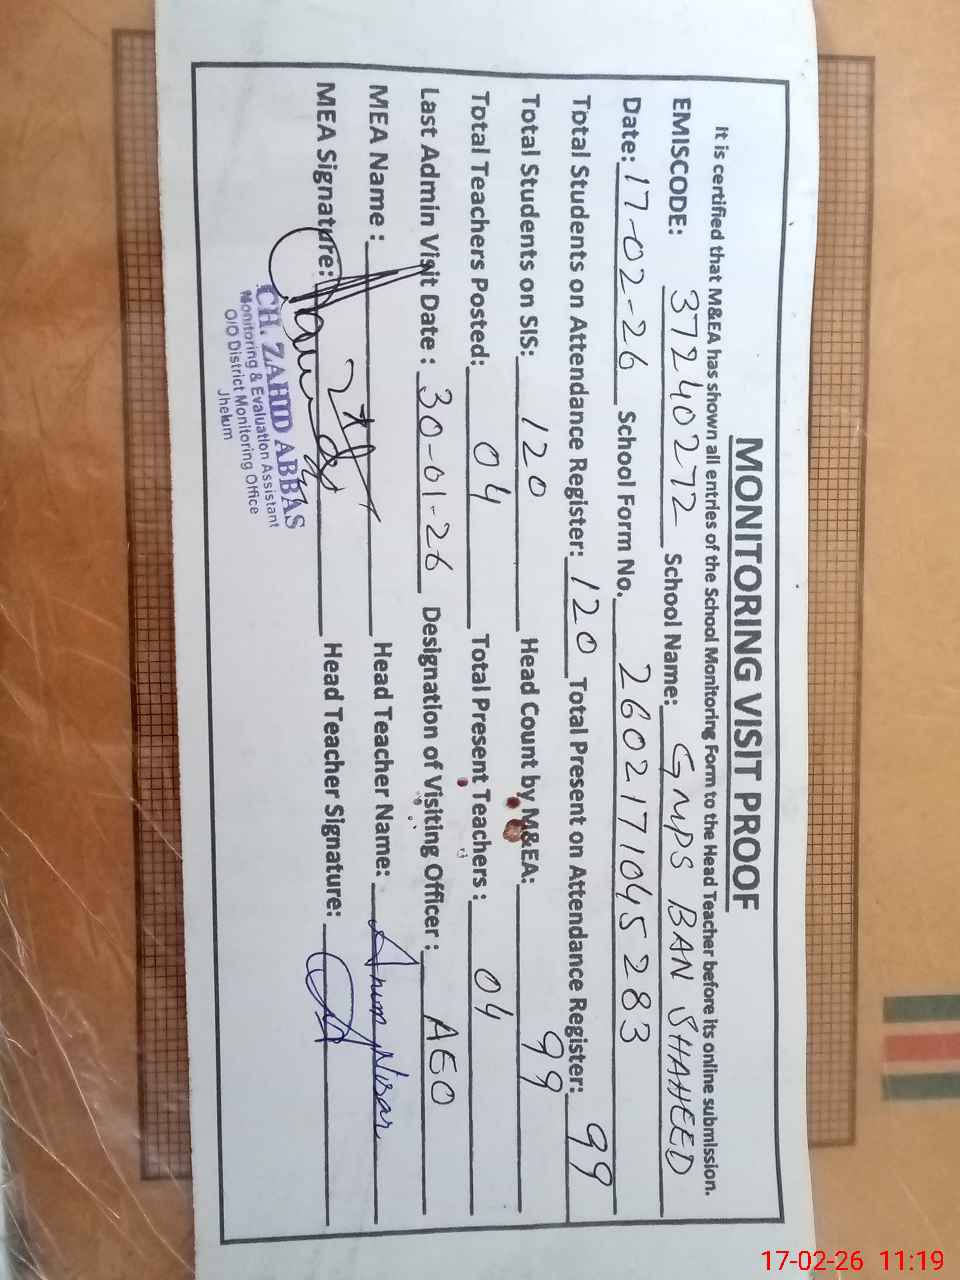 MONITORING VISIT PROOF
It is certified that M&EA has shown all entries of the School Monitoring Form to the Head Teacher before its online submission.
EMISCODE: 37240272 School Name: GMPS BAN SHAHEED
Date: 17-02-26 School Form No. 2602171045283
Total Students on Attendance Register: 120 Total Present on Attendance Register: 99
Total Students on SIS: 120 Head Count by M&EA: 99
Total Teachers Posted: 04 Total Present Teachers : 04
Last Admin Visit Date : 30-01-26 Designation of Visiting Officer : AEO
MEA Name : Head Teacher Name: Anum Nisar
MEA Signature: Head Teacher Signature:
CH. ZAHID ABBAS
Monitoring & Evaluation Assistant
O/O District Monitoring Office
Jhelum
17-02-26 11:19